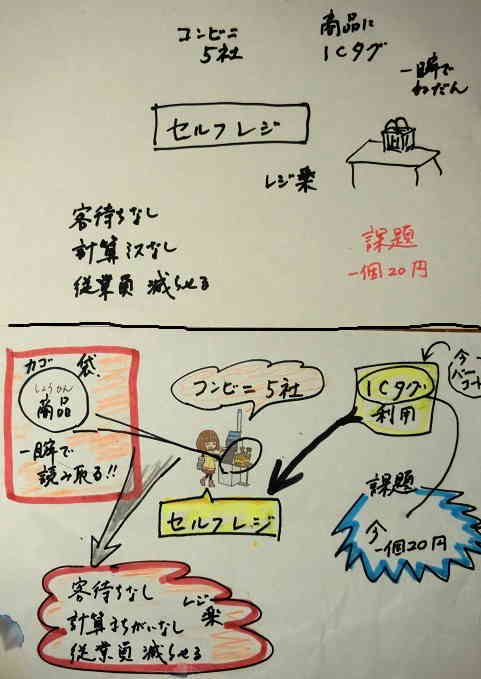 コンビニ
5社
商品に
ICタグ
一瞬で
ねだん
セルフレジ
レジ楽
客待ちなし
計算ミスなし
従業員 減らせる
課題
一個20円
カゴ 袋、
しょうひん
商品
一瞬で
読み取る!!
コンビニ 5社
ICタグ
利用
今
バー
コード
セルフレジ
課題
今
一個20円
客待ちなし
レジ楽
計算まちがいなし
従業員 減らせる